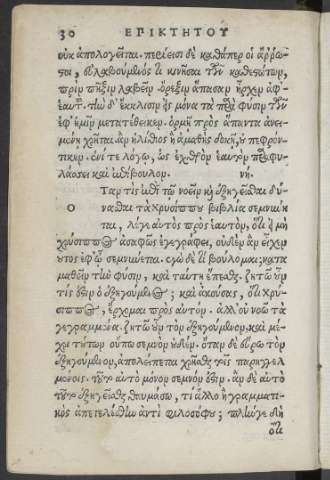 30 ΕΠΙΚΤΗΤΟΥ
οὐκ ἀπολογεῖται. περίεισι δὲ καθάπερ οἱ ἄῤῥω-
στοι, εὐλαβούμενός τι κινῆσαι τῶν καθισταμένων,
πρὶν πῆξιν λαβεῖν. ὄρεξιν ἅπασαν ἦρκεν ἀφ'
ἑαυτ. τὴν δ' ἔκκλισιν εἰς μόνα τὰ παρὰ φύσιν τῶν
ἐφ' ἡμῖν μετατέθεικεν. ὁρμῇ πρὸς ἅπαντα ἀνει-
μένῃ χρῆται. ἂν ἠλίθιος ἢ ἀμαθὴς δοκῇ, οὐ πεφρόν-
τικεν. ἑνί τε λόγῳ, ὡς ἐχθρὸν ἑαυτὸν παραφυ-
λάσσει καὶ ἐπίβουλον. νη.
Ὅταν τις ἐπὶ τῷ νοεῖν καὶ ἐξηγεῖσθαι δύ-
νασθαι τὰ Χρυσίππου βιβλία σεμνύνη-
ται, λέγε αὐτὸς πρὸς ἑαυτόν, ὅτι εἰ μὴ
χρύσιππος ἀσαφῶς ἐγεγράφει, οὐδὲν ἂν εἶχεν οὗ-
τος ἐφ' ᾧ σεμνύνεται. ἐγὼ δὲ τί βούλομαι; κατα
μαθεῖν τὴν φύσιν, καὶ ταύτῃ ἕπεσθαι. ζητῶ οὖν
τίς ἐστιν ὁ ἐξηγούμενος; καὶ ἀκούσας, ὅτι Χρύ-
σιππος, ἔρχομαι πρὸς αὐτόν. ἀλλ' οὐ νοῶ τὰ
γεγραμμένα. ζητῶ οὖν τὸν ἐξηγούμενον. καὶ μέ-
χρι τούτων οὔπω σεμνὸν οὐδέν. ὅταν δὲ εὕρω τὸν
ἐξηγούμενον, ἀπολείπεται χρῆσθαι τοῖς παρηγγελ
μένοις. τοῦτο αὐτὸ μόνον σεμνόν ἐστιν. ἂν δὲ αὐτὸ
τοῦτο ἐξηγεῖσθαι θαυμάσω, τί ἄλλο ἢ γραμματι-
κὸς ἀπετελέσθην ἀντὶ φιλοσόφου; πλήν γε δὴ
ὅτι